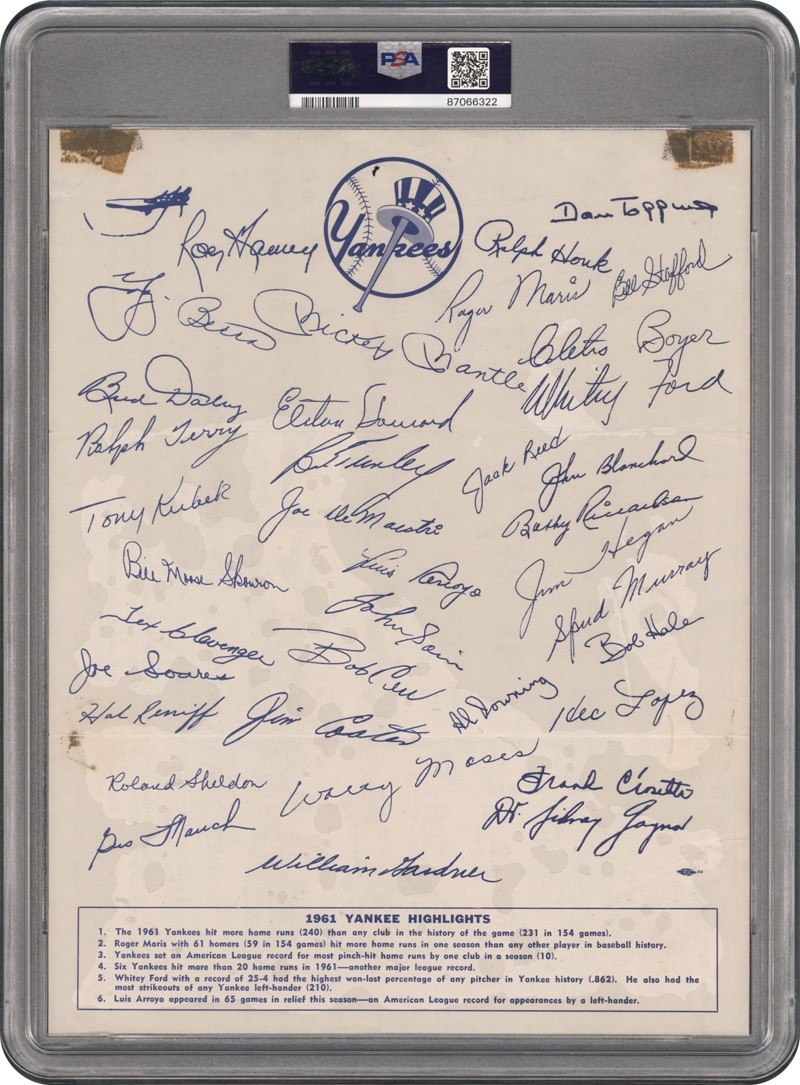 PSA
87066322
Yankees
Dan Topping
Roy Hamey
Ralph Houk
Bill Stafford
Yogi Berra
Mickey Mantle
Roger Maris
Cletis Boyer
Bud Daley
Elston Howard
Whitey Ford
Ralph Terry
Bob Turley
Jack Reed
John Blanchard
Tony Kubek
Joe De Maestri
Bobby Richardson
Bill Moose Skowron
Luis Arroyo
Jim Hegan
Tex Clevenger
John Sain
Spud Murray
Joe Soares
Bob Cerv
Bob Hale
Hal Reniff
Jim Coates
Al Downing
Hec Lopez
Roland Sheldon
Wally Moses
Frank Crosetti
Gus Mauch
Dr. Sidney Gaynor
William Gardner
1961 YANKEE HIGHLIGHTS
1. The 1961 Yankees hit more home runs (240) than any club in the history of the game (231 in 154 games).
2. Roger Maris with 61 homers (59 in 154 games) hit more home runs in one season than any other player in baseball history.
3. Yankees set an American League record for most pinch-hit home runs by one club in a season (10).
4. Six Yankees hit more than 20 home runs in 1961—another major league record.
5. Whitey Ford with a record of 25-4 had the highest won-lost percentage of any pitcher in Yankee history (.862). He also had the
most strikeouts of any Yankee left-hander (210).
6. Luis Arroyo appeared in 65 games in relief this season—an American League record for appearances by a left-hander.